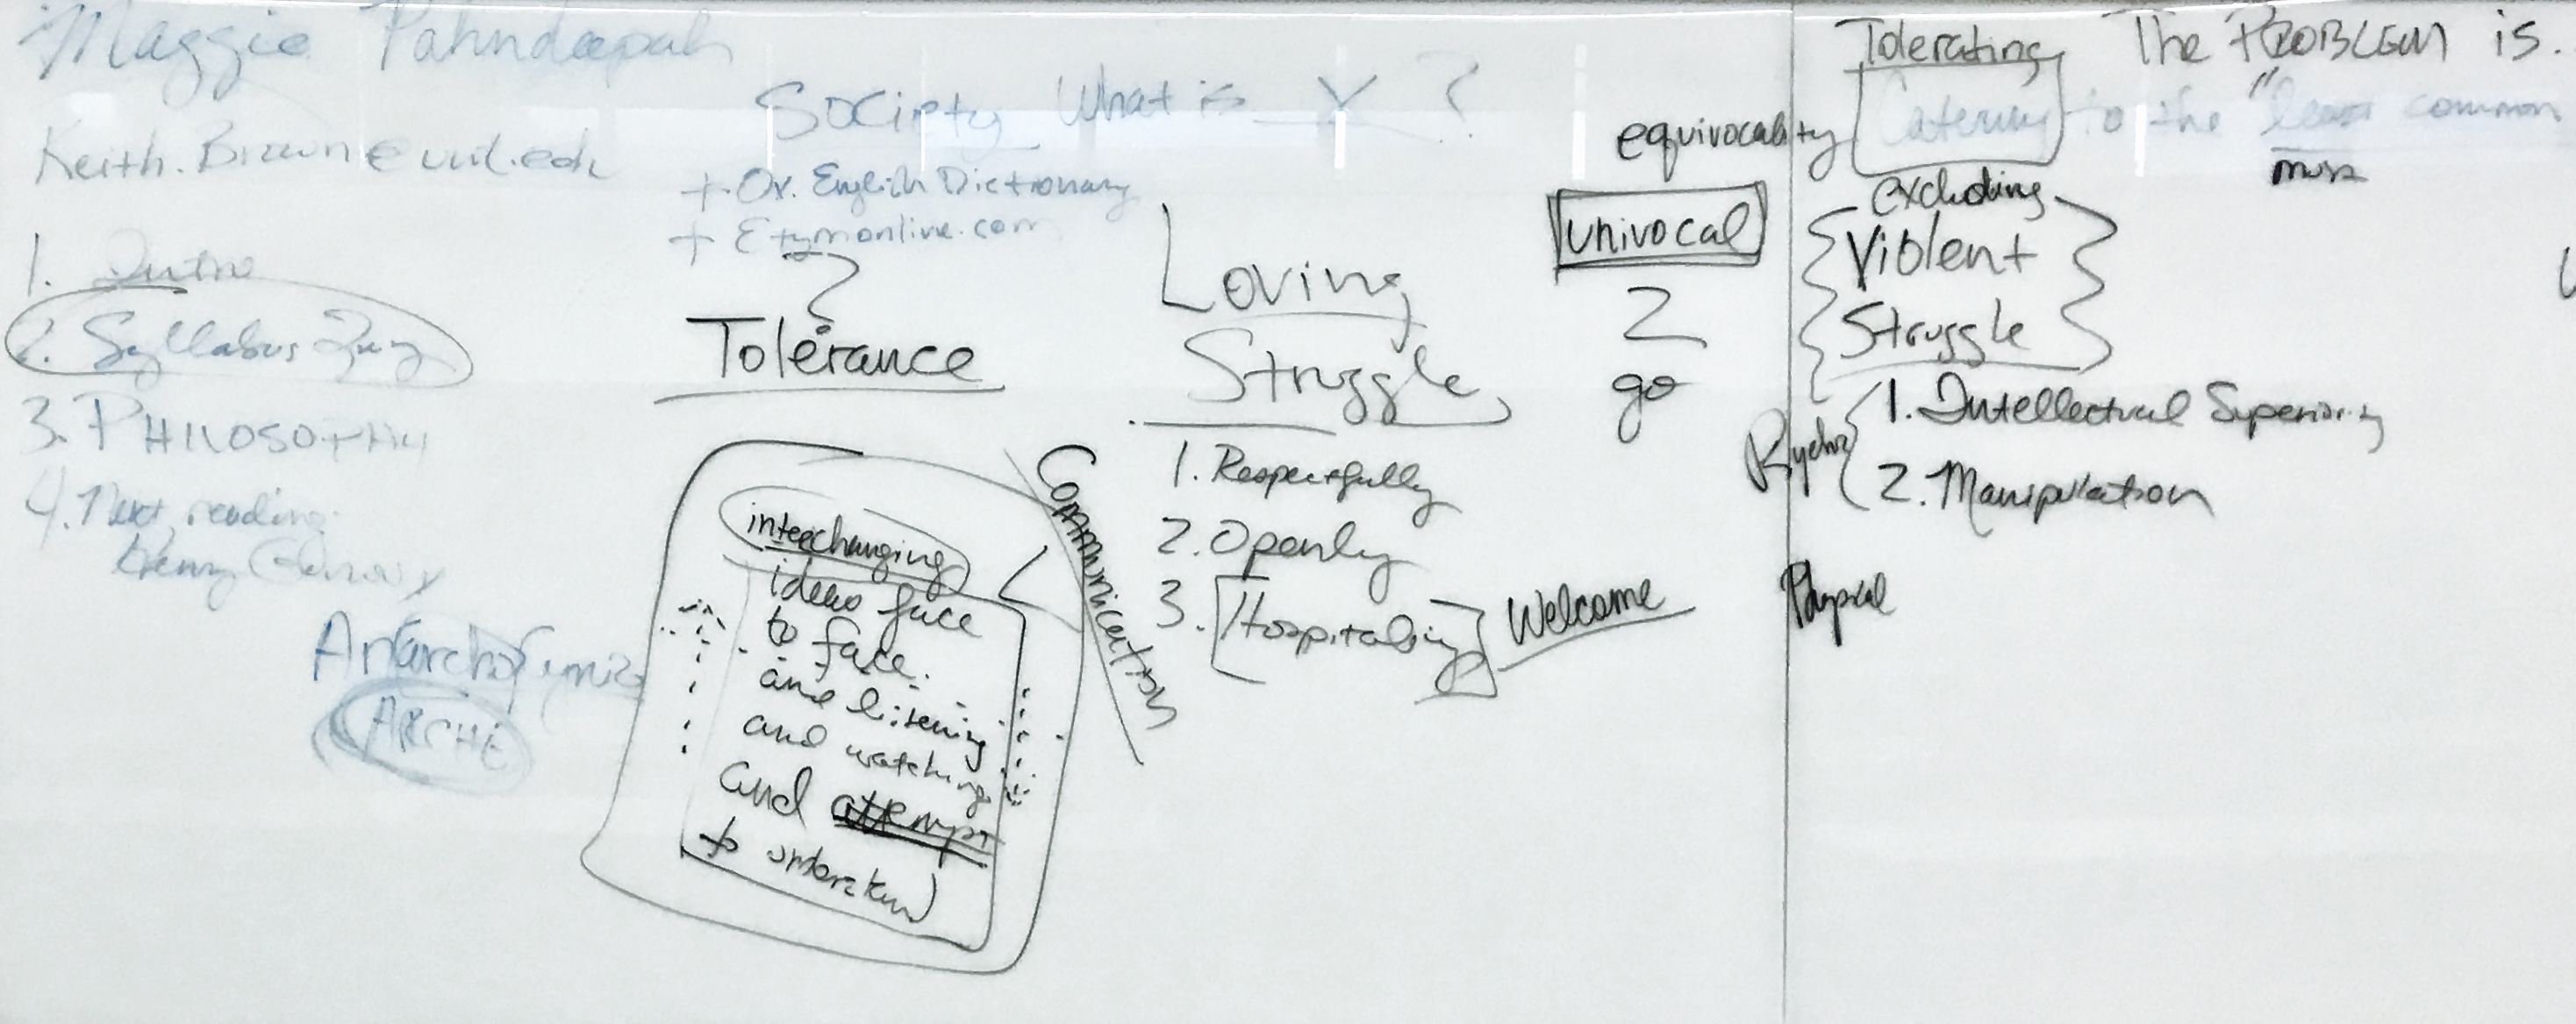 Maggie
Keith.Brown@uvu.edu
1. Intro
2. Syllabus Quiz
3. PHILOSOPHY
4. Next reading:
ARCHE
Society What is X ?
+ Ox. English Dictionary
+ Etymonline.com
Tolerance
interchanging
ideas face
to face.
and listening
and watching
and attempt
to understand
Communication
Loving
Struggle
1. Respectfully
2. Openly
3. [Hospitality] Welcome
equivocality
univocal
go
Tolerating The PROBLEM is.
Catering to the "least common
excluding
Violent
Struggle
1. Intellectual Superiority
2. Manipulation
Physical